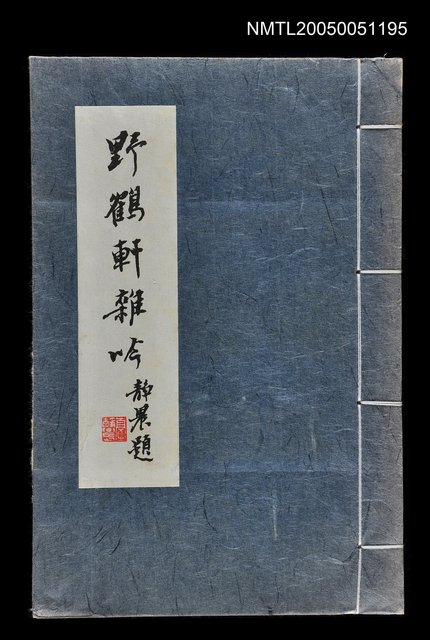 NMTL20050051195
野鶴軒雜吟
靜農題